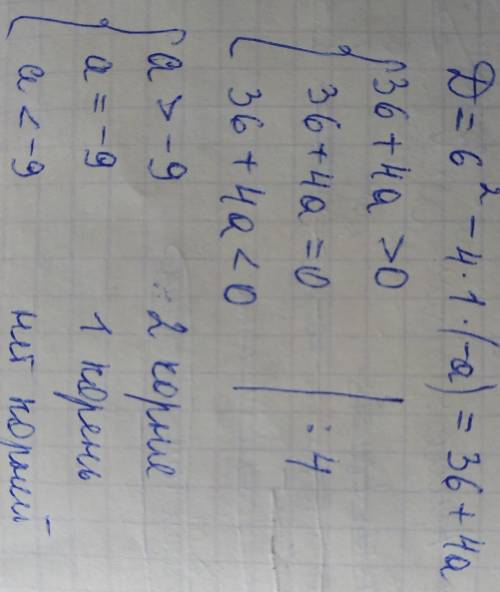 D = 6² - 4·1·(-a) = 36 + 4a
36 + 4a > 0
36 + 4a = 0 | : 4
36 + 4a < 0
a > -9 : 2 корние
a = -9 1 корень
a < -9 нет корний